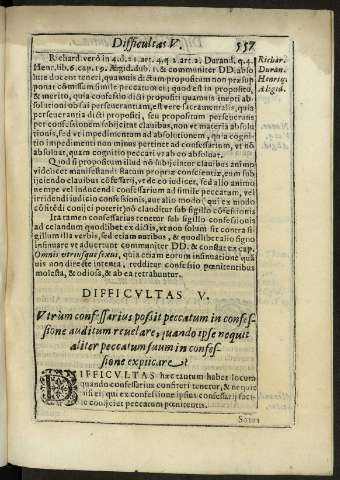 Difficultas V. 557
Richard. verò in 4. d. 21. art. 4. q. 2. art. 2. Durand. q. 4.
Henr. lib. 6. cap. 19. Ægid. dub. 1. & communiter DD. abso
lute docent teneri, quantis dictum propositum non præsup
ponat cõmissum simile peccatum et; quod est in proposito,
& merito, quia confessio dicti propositi quamuis inepti abs
solutioni ob ei perseuerantiam, est vere sacramentalis, quia
perseuerantia dicti propositi, seu propositum perseuerans
per confessionem subijcitat clauibus, non vt materia absolu
tionis, sed vt impedimentum ad absolutionem, quia cogni
tio impedimenti non minus pertinet ad confessarium, vt nõ
absoluat, quam cognitio peccati vt ab eo absoluat.
Quod si propositum illud nõ subijciatur clauibus animo
videlicet manifestandi statum propriæ conscientiæ, eum sub
ijciendo clauibus cõfessarij, vt de eo iudicet, sed alio animo
nempe vel inducendi confessarium ad simile peccatum, vel
irridendi iudicio confessionis, aut alio modo; qui ex modo
cõfitẽdi conijci poterit; nõ clauditur sub sigillo cõfessionis
Ita tamen confessarius tenetur sub sigillo confessionis
ad celandum quodlibet ex dictis, vt non solum sit contra si
gillum illa verbis, sed etiam nutibus, & quodlibet alio signo
insinuare vt aduertunt communiter DD. & constat ex cap.
Omnis vtriusque sexus, quia etiam eorum insinuatione quam
uis non directe intenta, redditur confessio pœnitentibus
molesta, & odiosa, & ab ea retrahuntur.
Richar.
Duran.
Henriq.
Aegid.
DIFFICVLTAS V.
Vtrùm confessarius possit peccatum in confes-
sione auditum reuelare, quando ipse nequit
aliter peccatum suum in confes-
sione explicare.
DIFFICVLTAS hæc tantum habet locum
quando confessarius confiteri tenetur, & nequit
nisi ei; qui ex confessione ipsius confessarij faci-
le conijciet peccatum pœnitentis.